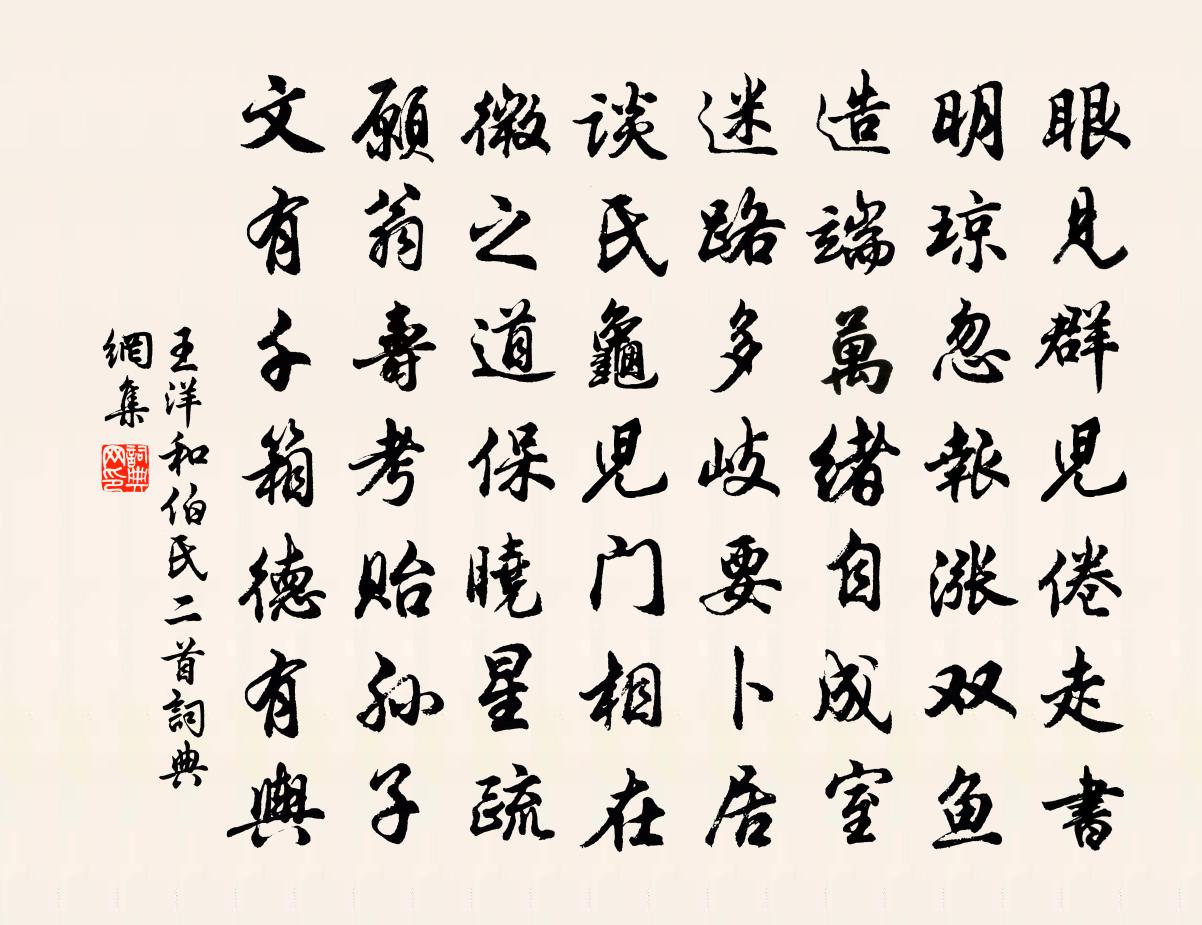 眼見群児倦走書
明琼忽報漲双鱼
造端萬緒自成室
迷路多岐要卜居
谈氏龜児门相在
微之道保曉星疏
願翁壽考貽孙子
文有千箱德有輿
王洋和伯氏二首詞典
網集
詞典
网印